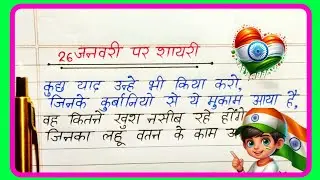 26 जनवरी पर शायरी
कुछ याद उन्हे भी किया करो,
जिनके कुर्बानियो से ये मुकाम आया है,
वह कितने खुश नसीब रहे होंगे
जिनका लहू वतन के काम